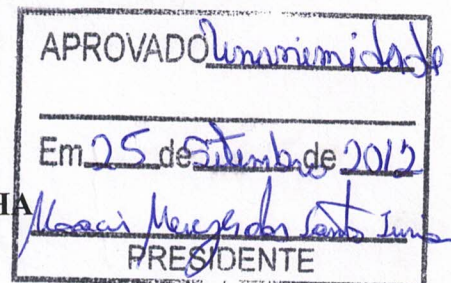 APROVADO Unanimidade
Em 25 de Setembro de 2012
HA
Moacir Menezes dos Santos Junior
PRESIDENTE